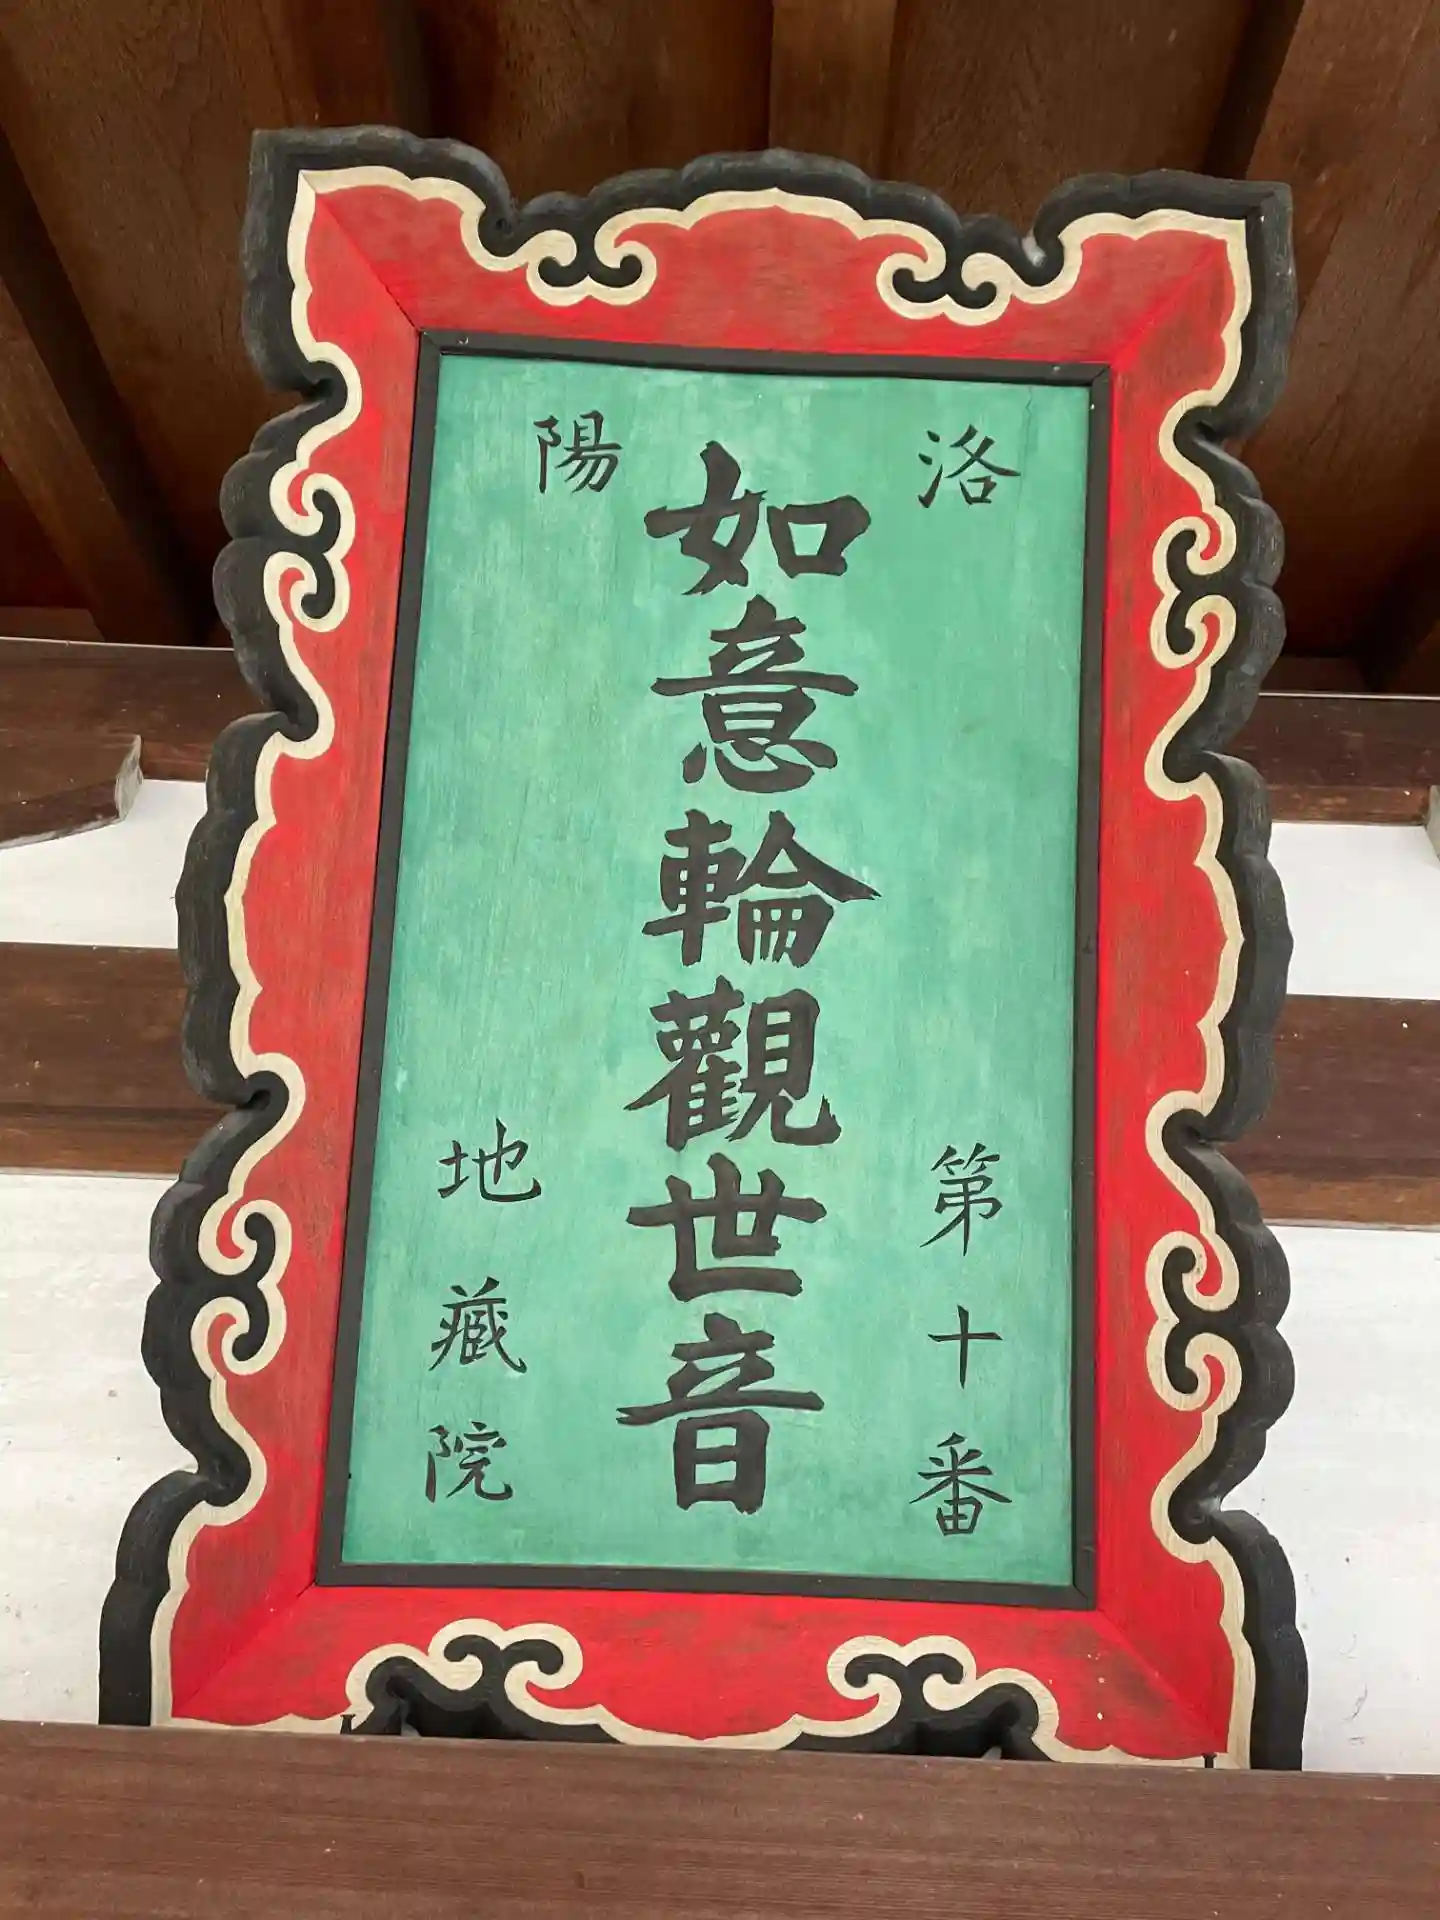 洛陽
第十番
如意輪觀世音
地藏院